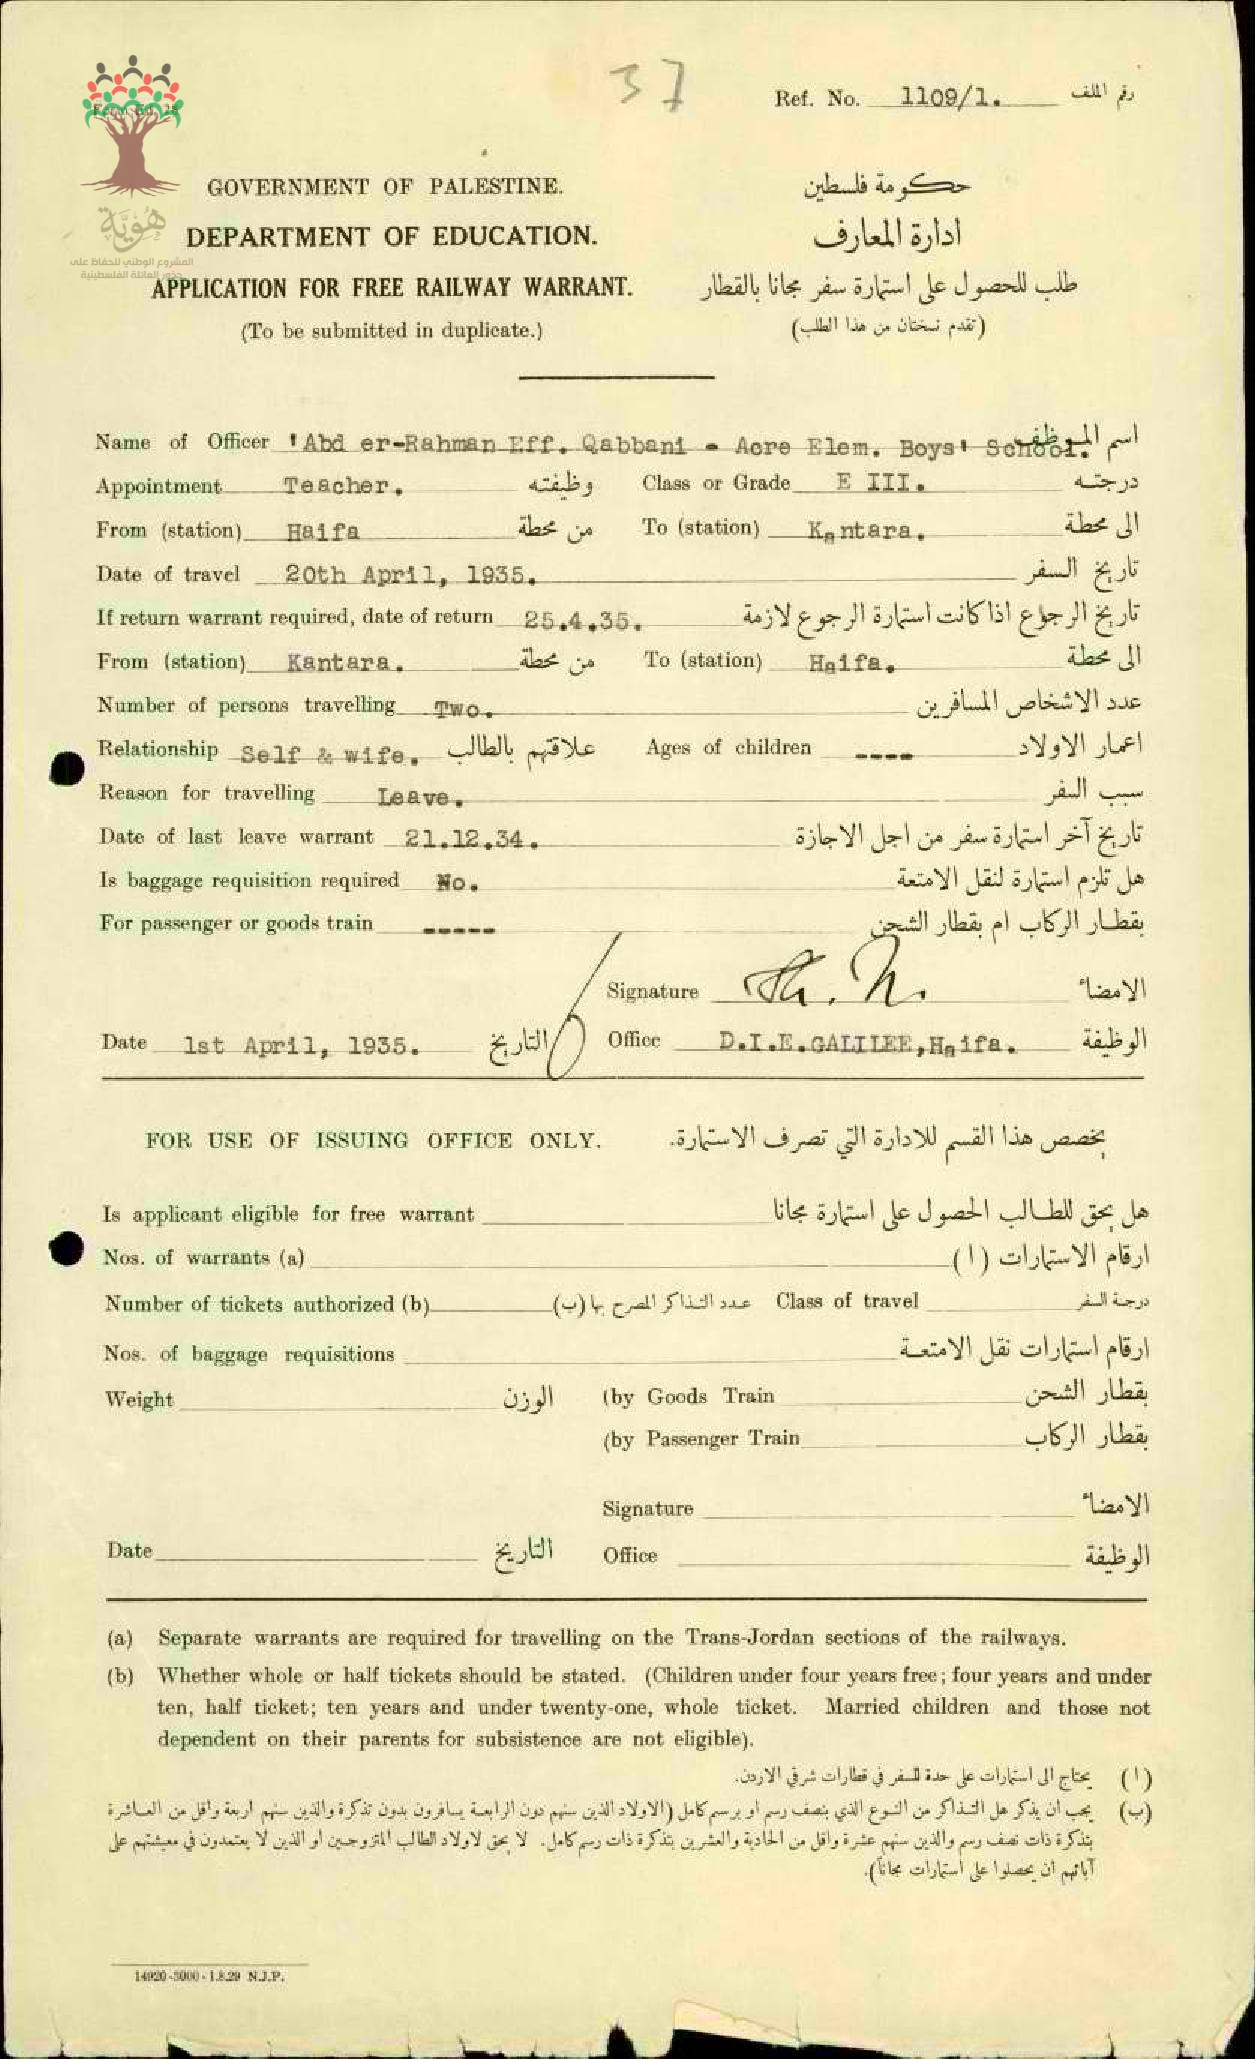 37
Ref. No. 1109/1. رقم الملف
هُوِيَّة
المشروع الوطني للحفاظ على
جذور العائلة الفلسطينية
GOVERNMENT OF PALESTINE. حكومة فلسطين
DEPARTMENT OF EDUCATION. ادارة المعارف
APPLICATION FOR FREE RAILWAY WARRANT. طلب للحصول على استمارة سفر مجانا بالقطار
(To be submitted in duplicate.) (تقدم نسختان من هذا الطلب)
Name of Officer 'Abd er-Rahman Eff. Qabbani - Acre Elem. Boys' School. اسم الموظف
Appointment Teacher. وظيفته Class or Grade E III. درجته
From (station) Haifa من محطة To (station) Kantara. الى محطة
Date of travel 20th April, 1935. تاريخ السفر
If return warrant required, date of return 25.4.35. تاريخ الرجوع اذا كانت استمارة الرجوع لازمة
From (station) Kantara. من محطة To (station) Haifa. الى محطة
Number of persons travelling Two. عدد الاشخاص المسافرين
Relationship Self & wife. علاقتهم بالطالب Ages of children ---- اعمار الاولاد
Reason for travelling Leave. سبب السفر
Date of last leave warrant 21.12.34. تاريخ آخر استمارة سفر من اجل الاجازة
Is baggage requisition required No. هل تلزم استمارة لنقل الامتعة
For passenger or goods train ----- بقطار الركاب ام بقطار الشحن
Signature الامضاء
Date 1st April, 1935. التاريخ Office D.I.E.GALILEE,Haifa. الوظيفة
FOR USE OF ISSUING OFFICE ONLY. يخصص هذا القسم للادارة التي تصرف الاستمارة.
Is applicant eligible for free warrant هل يحق للطالب الحصول على استمارة مجانا
Nos. of warrants (a) ارقام الاستمارات (ا)
Number of tickets authorized (b) عدد التذاكر المصرح بها (ب) Class of travel درجة السفر
Nos. of baggage requisitions ارقام استمارات نقل الامتعة
Weight الوزن (by Goods Train بقطار الشحن
(by Passenger Train بقطار الركاب
Signature الامضاء
Date التاريخ Office الوظيفة
(a) Separate warrants are required for travelling on the Trans-Jordan sections of the railways.
(b) Whether whole or half tickets should be stated. (Children under four years free; four years and under
ten, half ticket; ten years and under twenty-one, whole ticket. Married children and those not
dependent on their parents for subsistence are not eligible).
(ا) يحتاج الى استمارات على حدة للسفر في قطارات شرقي الاردن.
(ب) يجب ان يذكر هل التذاكر من النوع الذي بنصف رسم او برسم كامل (الاولاد الذين سنهم دون الرابعة يسافرون بدون تذكرة والذين سنهم اربعة واقل من العاشرة
بتذكرة ذات نصف رسم والذين سنهم عشرة واقل من الحادية والعشرين بتذكرة ذات رسم كامل. لا يحق لاولاد الطالب المتزوجين او الذين لا يعتمدون في معيشتهم على
آبائهم ان يحصلوا على استمارات مجاناً).
14920-3000-1.8.29 N.J.P.